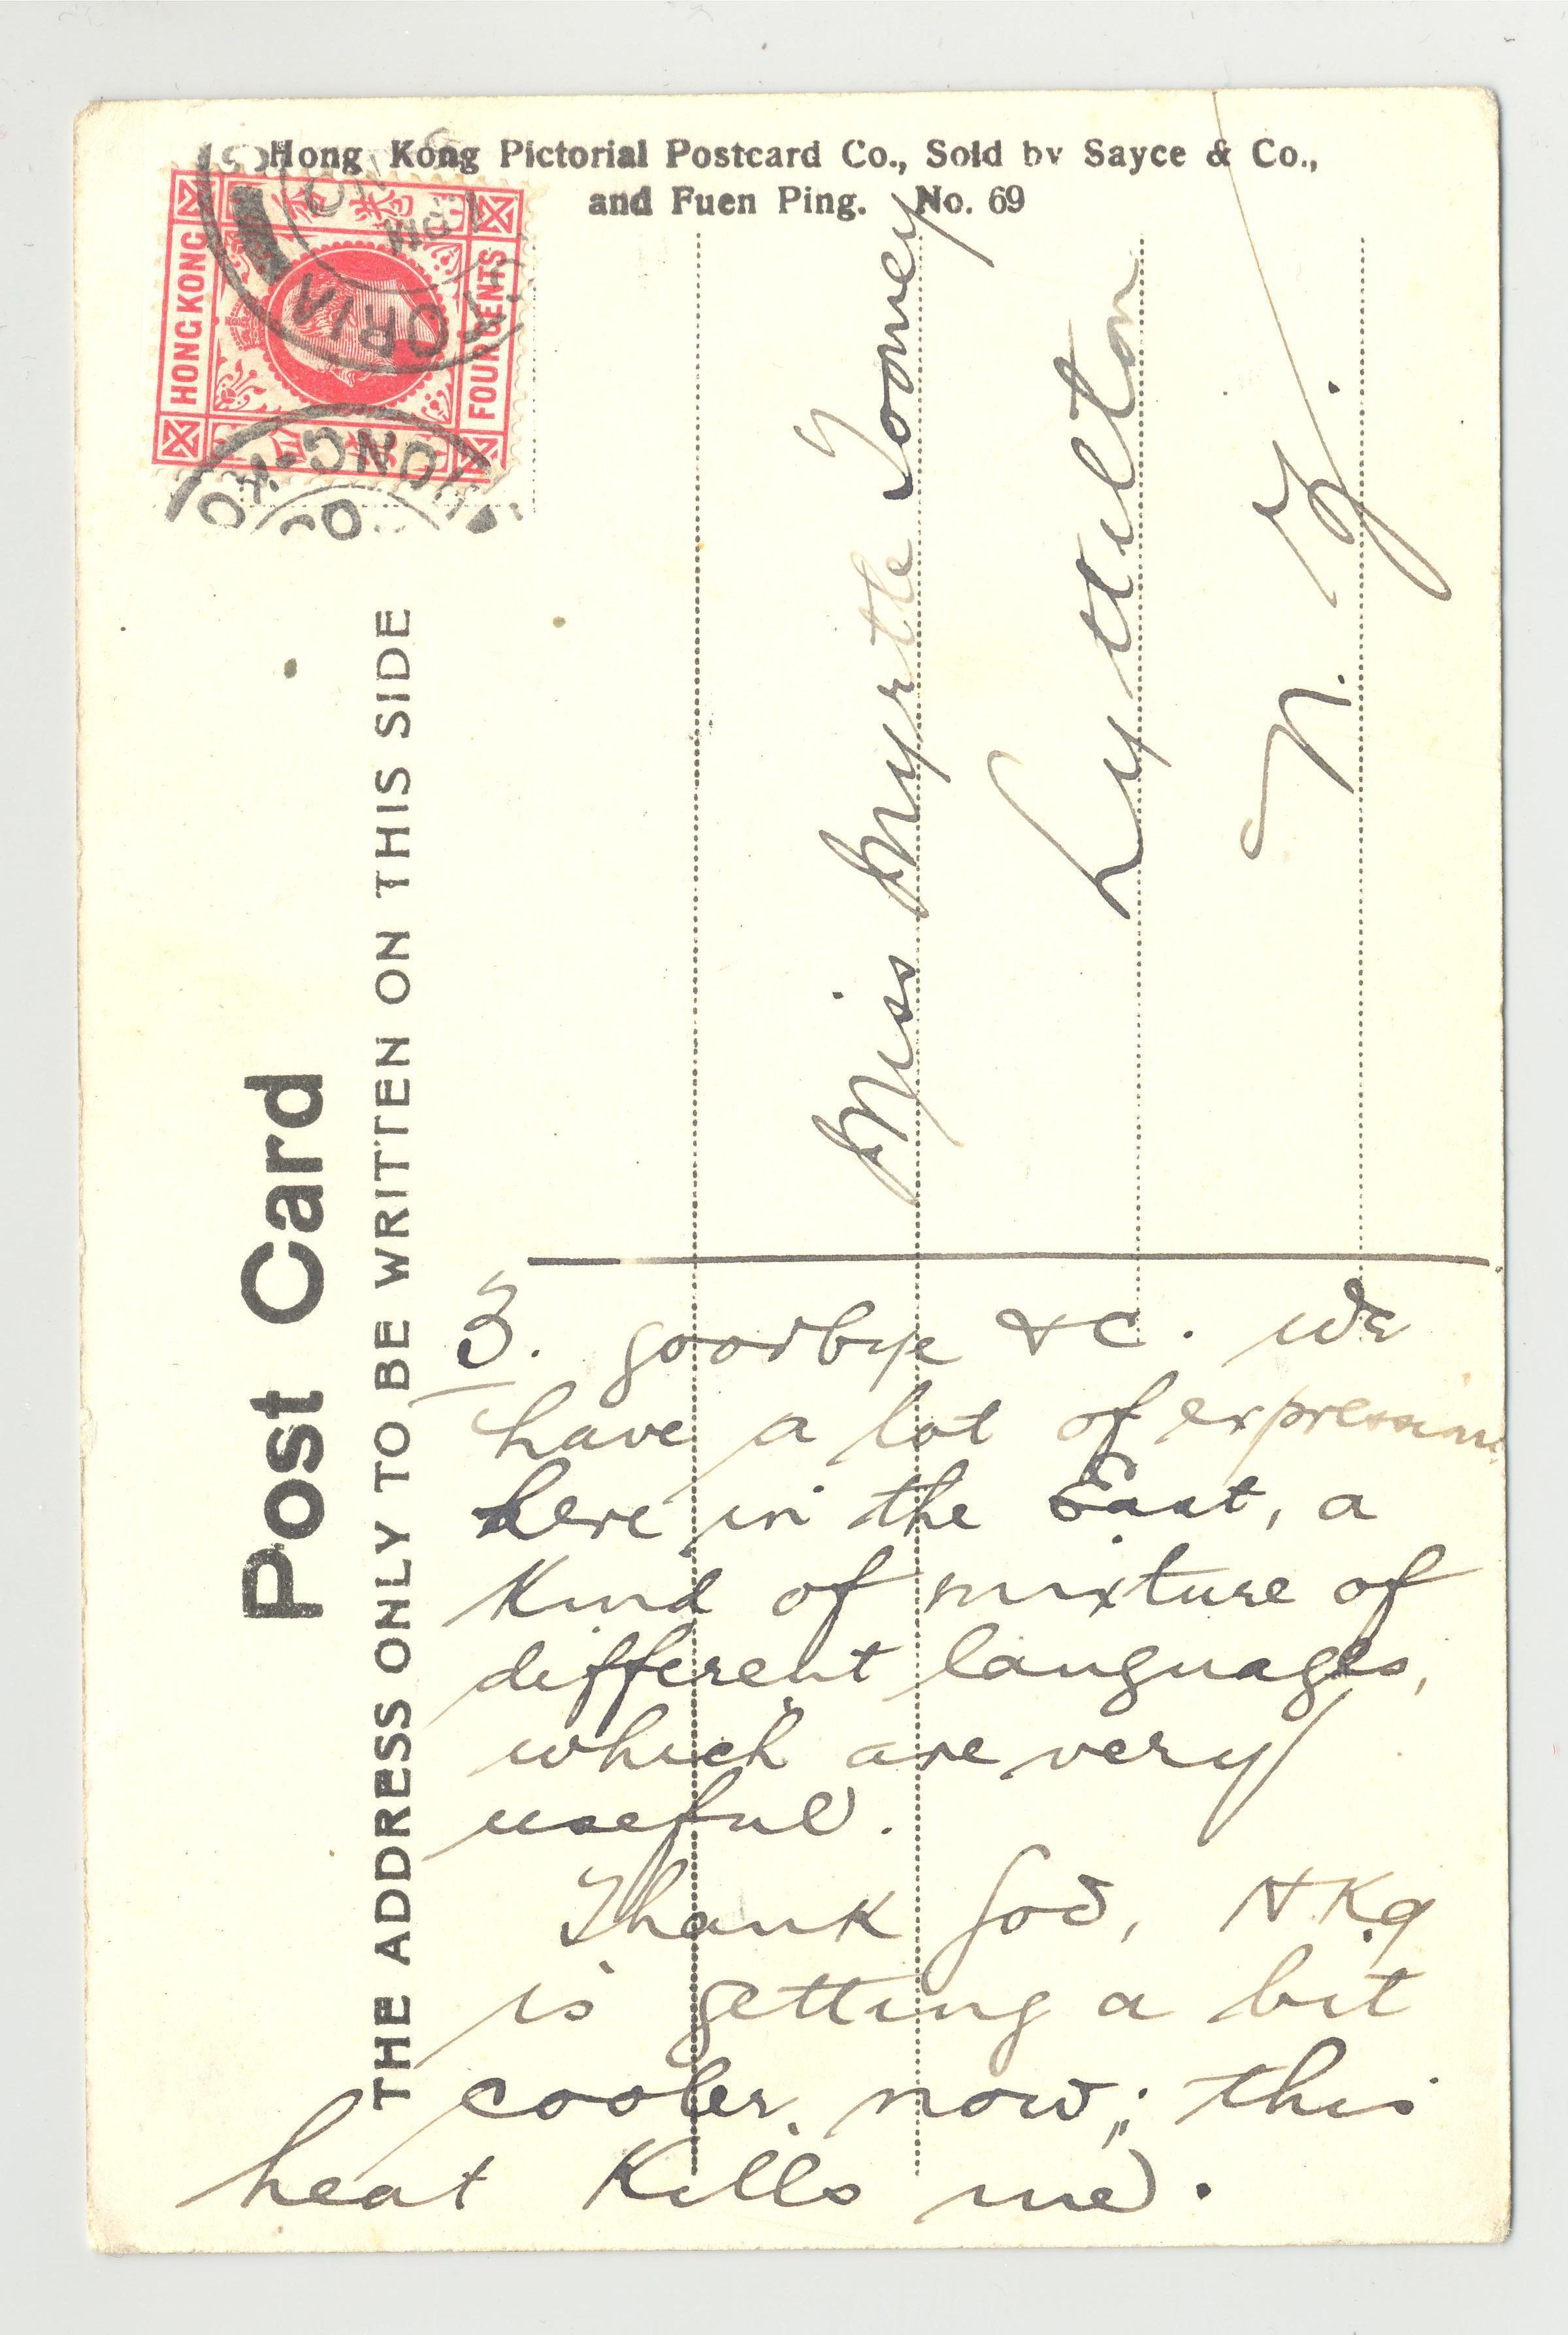 Hong Kong Pictorial Postcard Co., Sold by Sayce & Co.,
and Fuen Ping. No. 69
HONG KONG
FOUR CENTS
Post Card
THE ADDRESS ONLY TO BE WRITTEN ON THIS SIDE
Miss Myrtle Toomey
Lyttelton
N. Z.
3. goodbye &c. We
have a lot of expressions
here in the East, a
kind of mixture of
different languages,
which are very
useful.
Thank God, H.Kg
is getting a bit
cooler now; this
heat kills me.